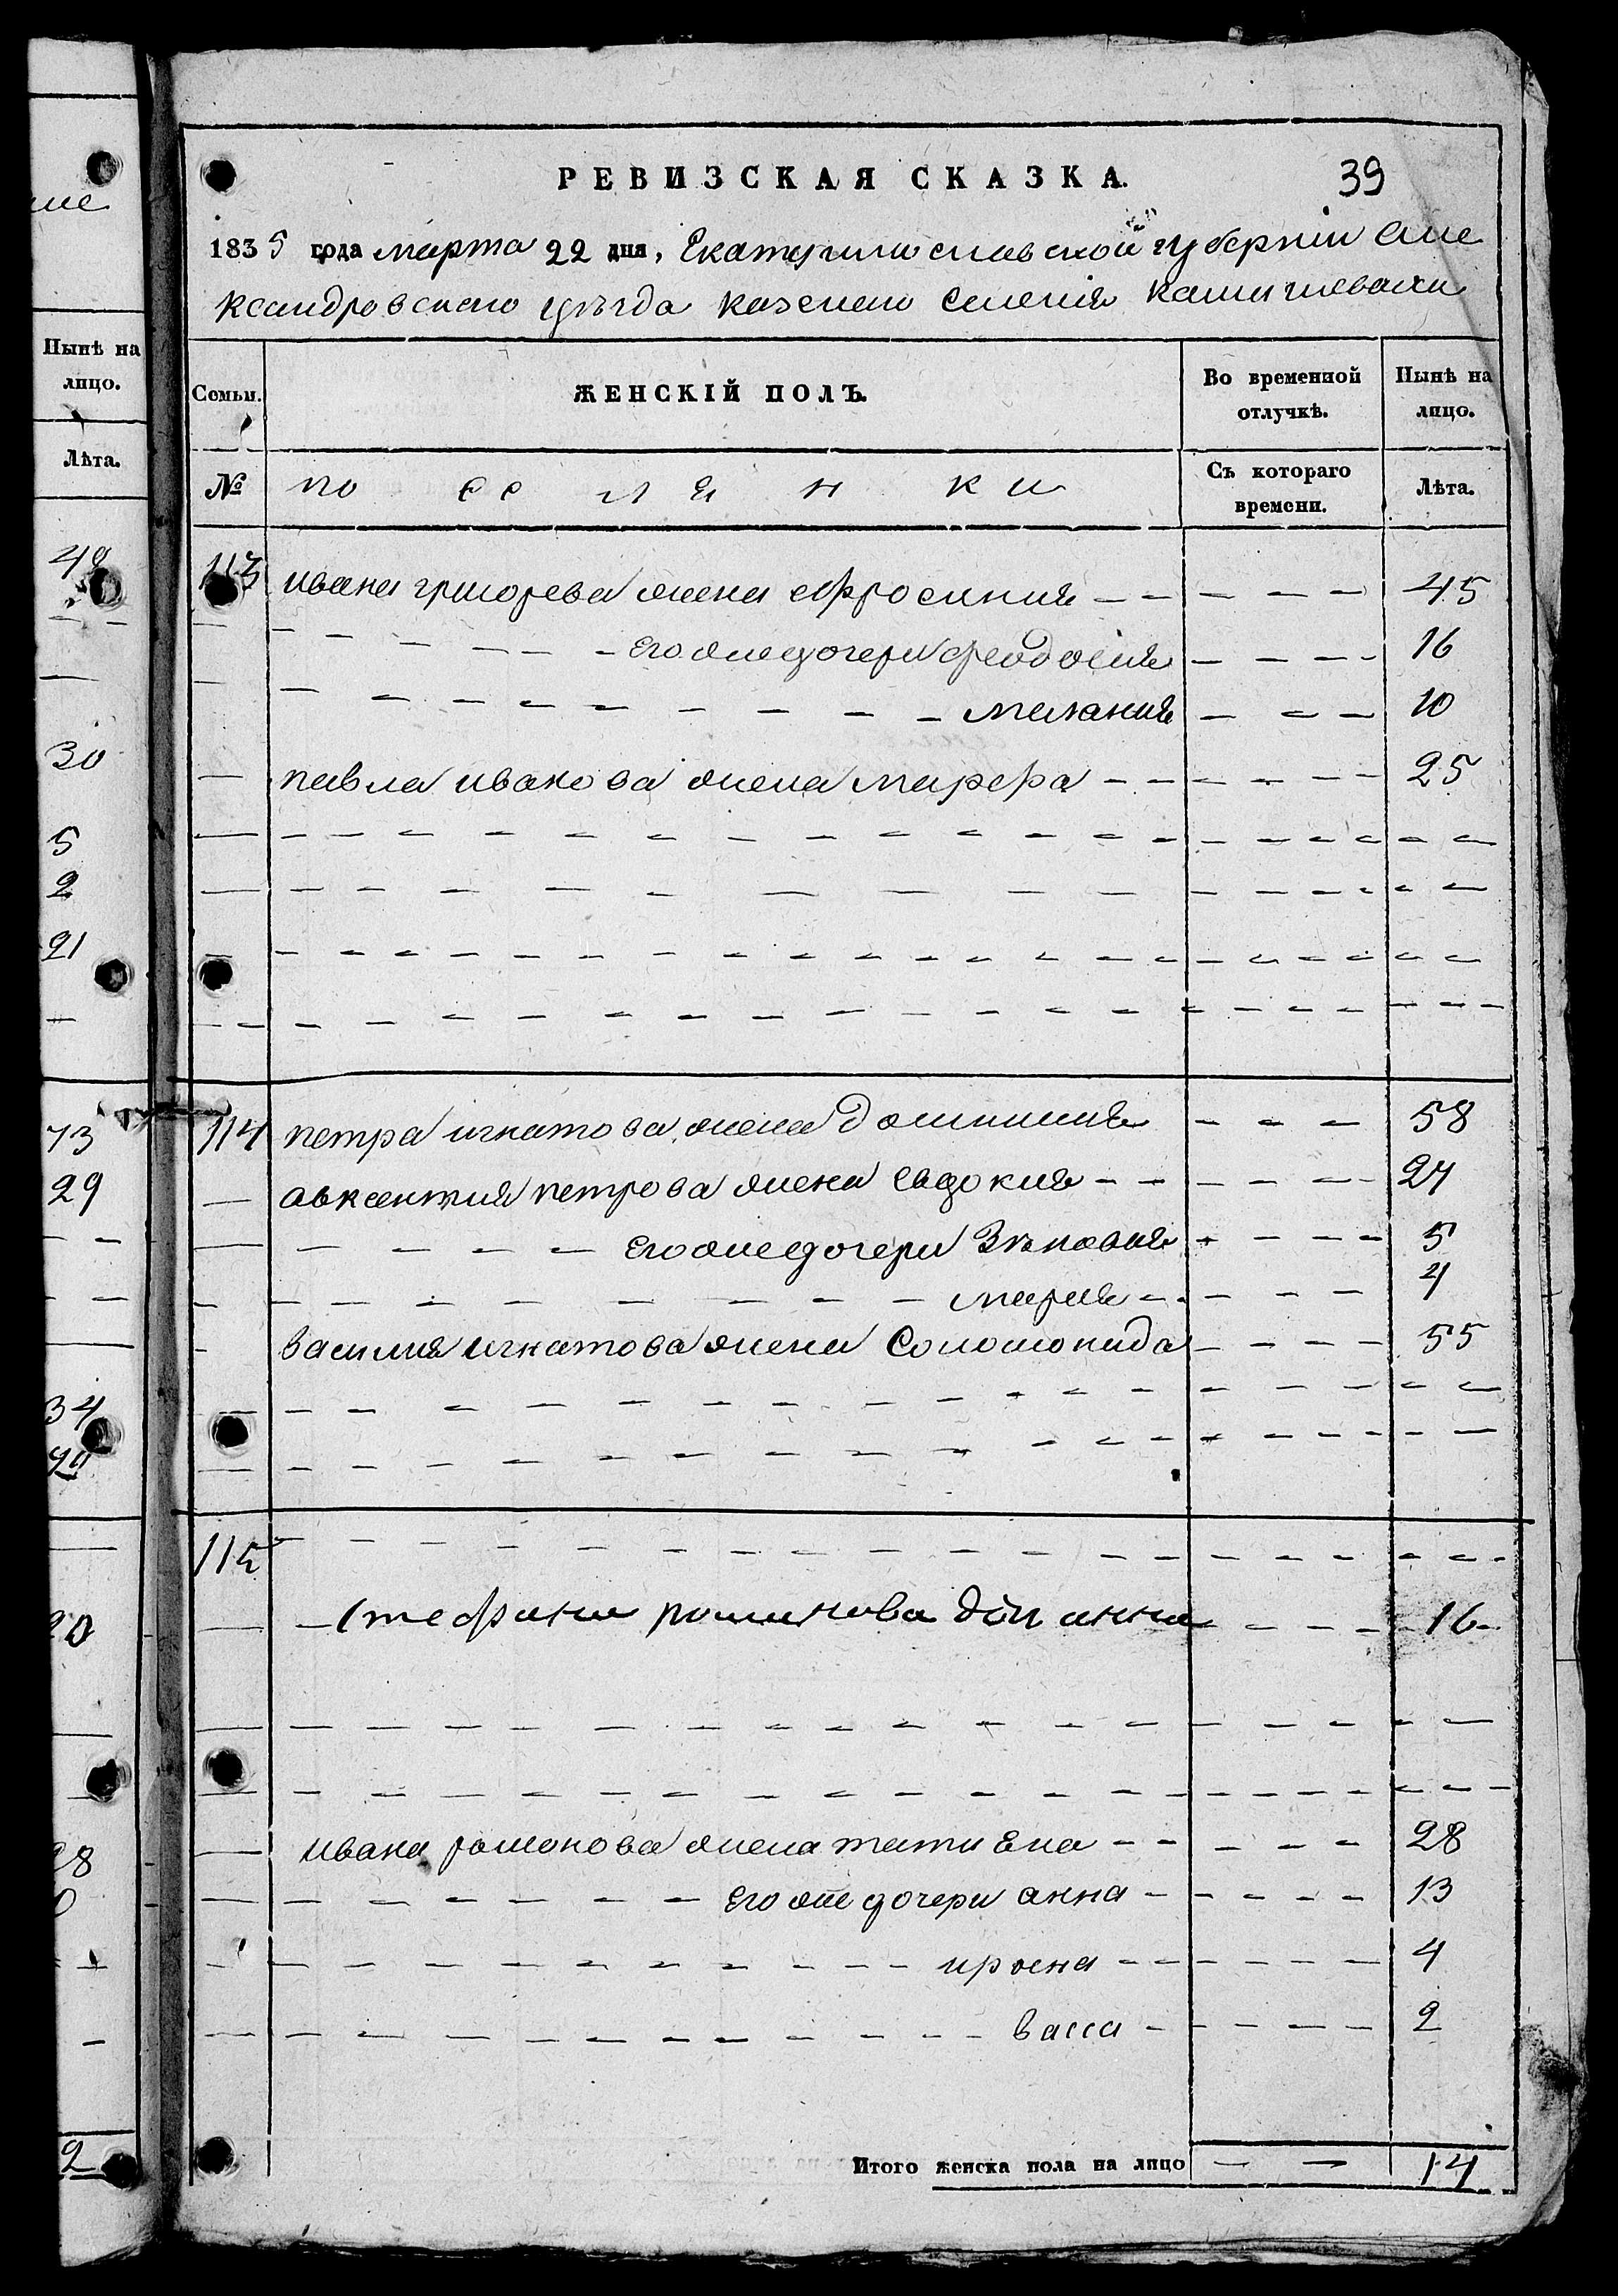 РЕВИЗСКАЯ СКАЗКА.
39
1835 года марта 22 дня, Екатеринославской губернiи Але
ксандровскаго уѣзда казенаго Селенiя Камышевахи
Семьи.
ЖЕНСКІЙ ПОЛЪ.
Во временной отлучкѣ.
Нынѣ на лицо.
№
по се лян ки
Съ котораго времени.
Лѣта.
113 ивана григорева жена ефросиния 45
его же дочери феодосия 16
мелания 10
павла иванова жена марфа 25
114 петра игнатова жена домникия 58
авксентия петрова жена Евдокия 27
его же дочери Зѣновия 5
мария 4
василия игнатова жена Соломонида 55
115
Стефана романова дочь анна 16
ивана романова жена татиена 28
его же дочери анна 13
ирена 4
васса 2
Итого женска пола на лицо 14
Нынѣ на
лицо.
Лѣта.
30
5
2
21
73
29
34